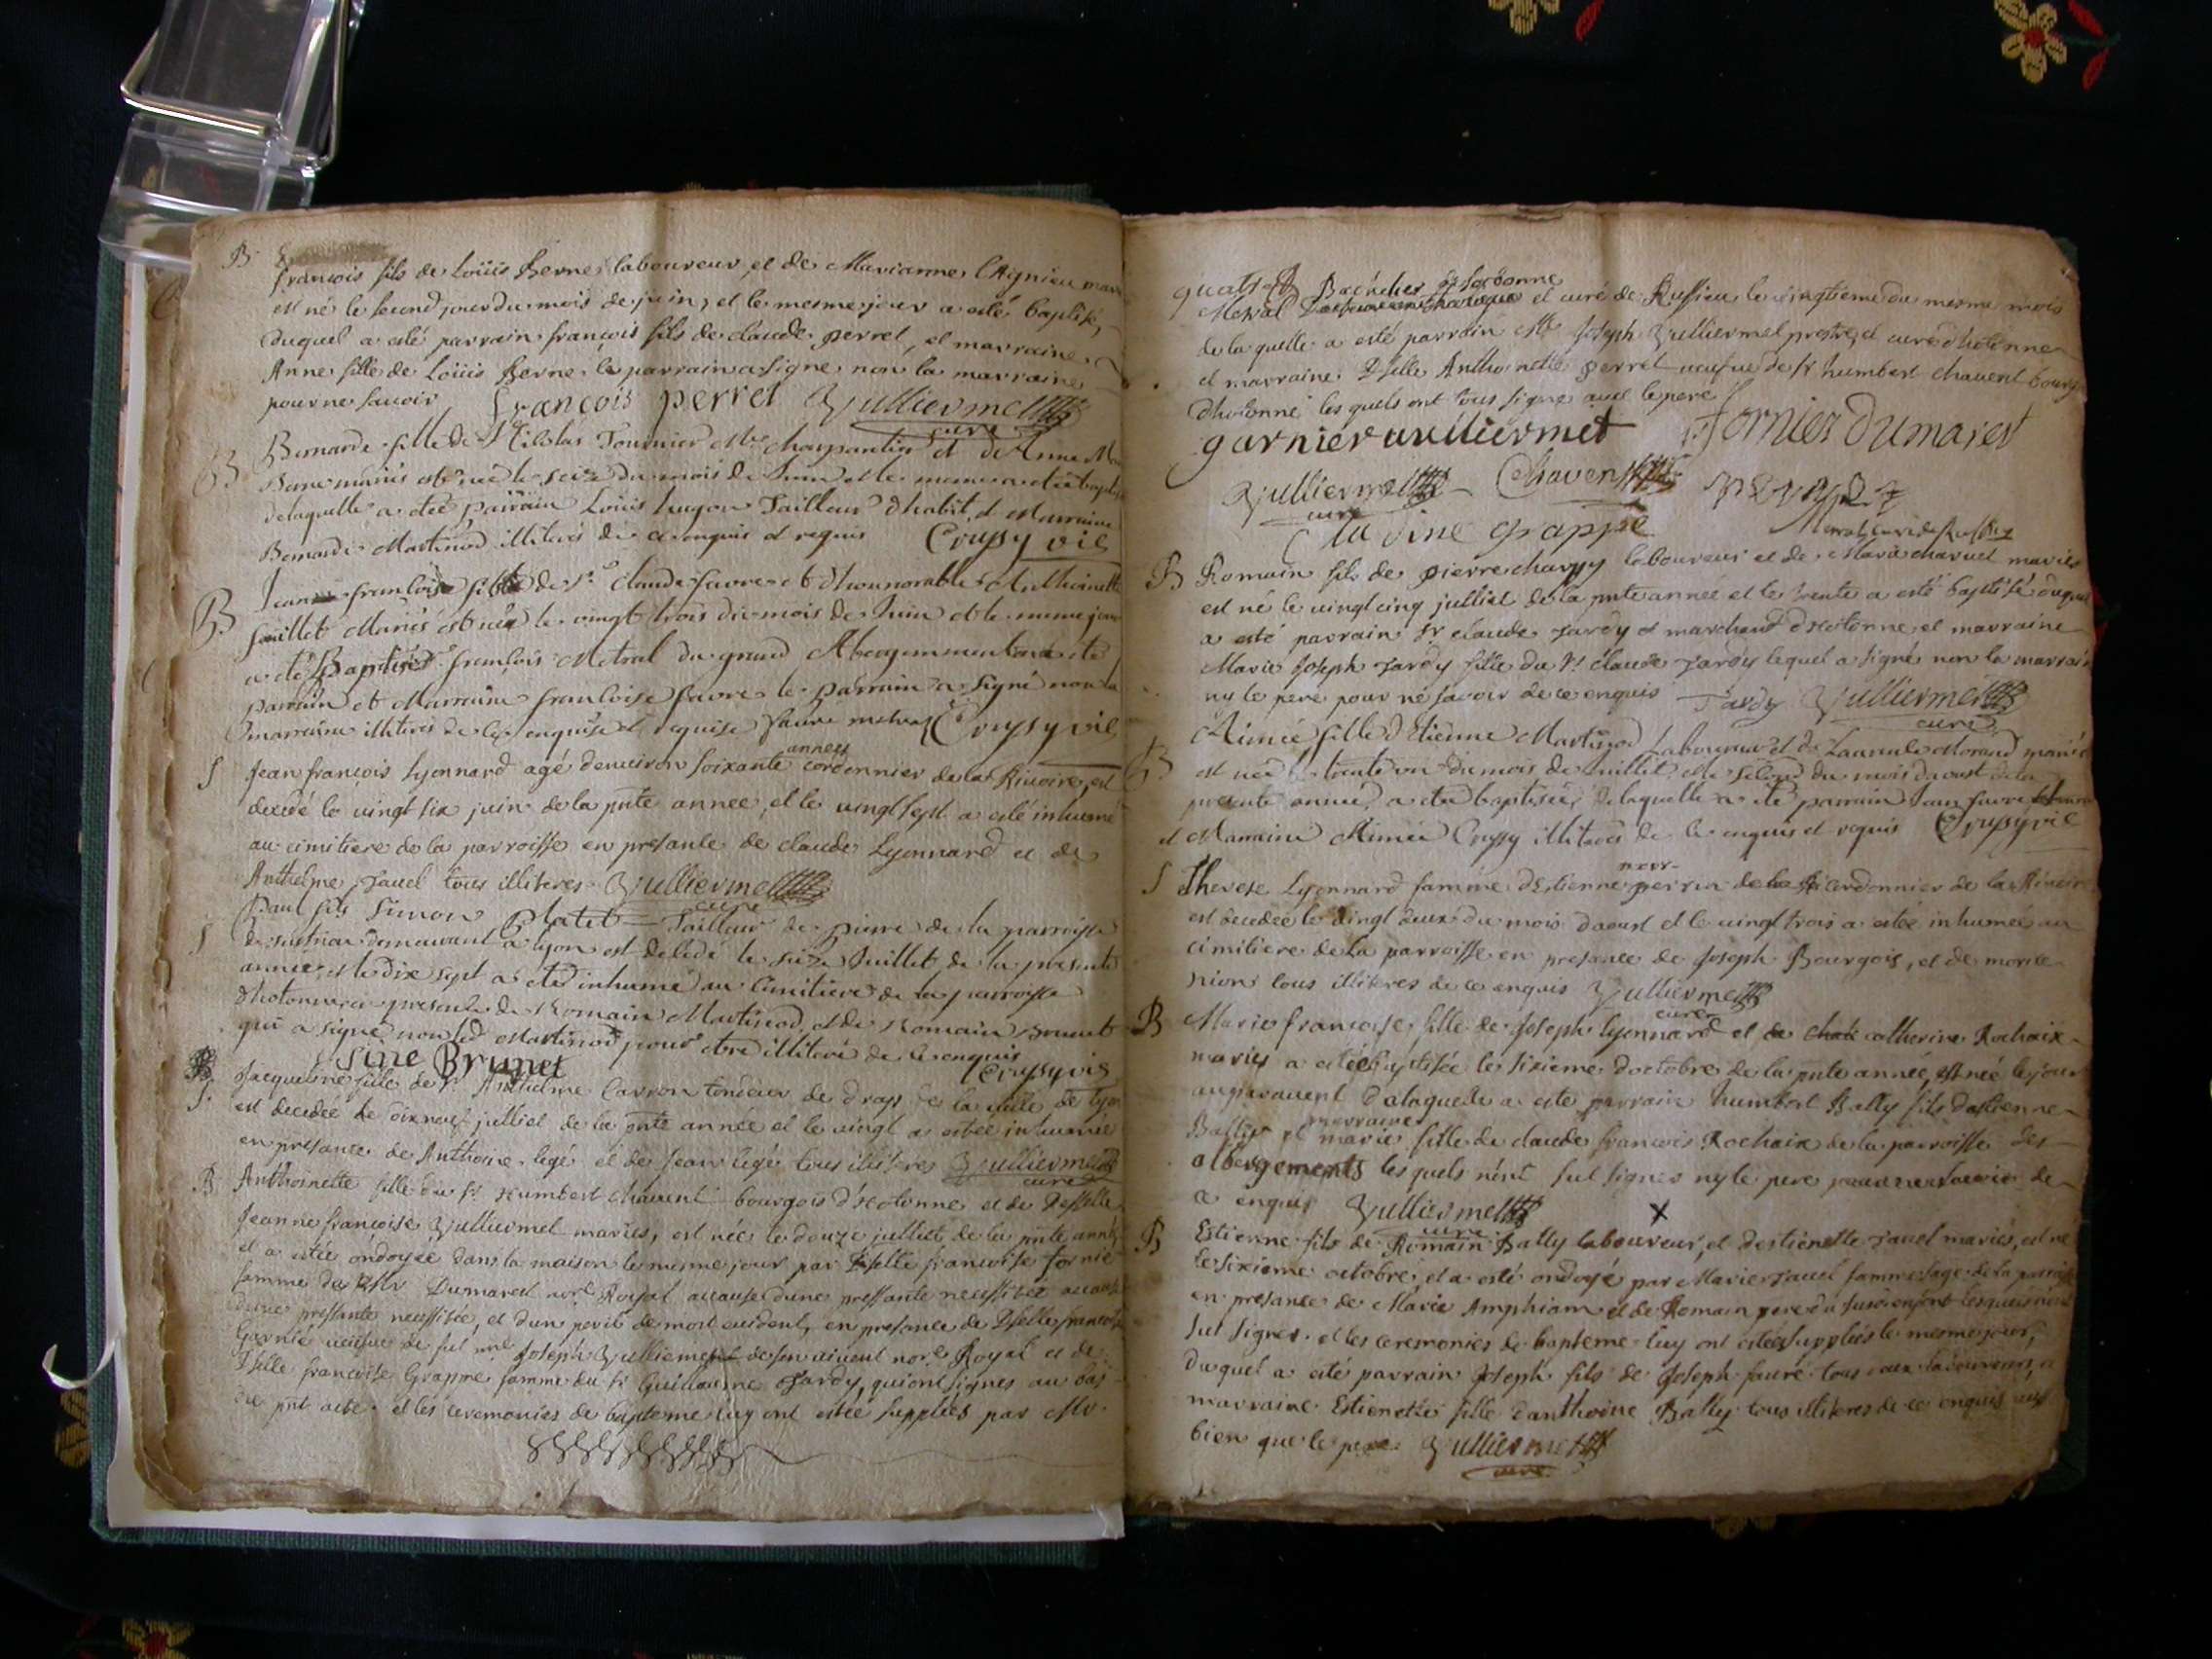 B
françois fils de Loüis Berne laboureur et de Marianne l'Agnieu mariés
est né le second jour du mois de juin, et le mesme jour a esté baptisé,
duquel a esté parrain françois fils de claude perret, et marraine
Anne fille de Loüis Berne le parrain a signé non la marraine
pour ne savoir françois perret Jullierme
curé
B Bernarde fille de Nicolas Tournier Mre charpantier et de Anne
mariés est née le seize du mois de Juin et le meme a été baptisée
delaquelle a été parrain Loüis hugon Tailleur dhabit et Marraine
Bernarde Martinod illiterés de ce enquis et requis Crussy vic
B françoise de Sr Claude favre et d'honnorable Anthoinette
Juillet Mariés est née le vingt trois du mois de Juin et le meme jour
a été Baptisé françois Metral du grand Abergemment a été
parrain et Marraine françoise favre le parrain a signé non la
marraine illiterée de ce enquise et requise Crussy vic
années
S Jean françois Lyonnard agé denuiron soixante cordonnier de la Riuoire, est
decedé le vingt six juin de la pnte année, et le vingt sept a esté inhumé
au cimitiere de la parroisse en presance de claude Lyonnard et de
Anthelme Jauel tous illiteres Jullierme
curé
S Paul fils Simon Platet Tailleur de pierre de la parroisse
demeurant a lyon est decedé le seize Juillet de la presente
année et le dix sept a été inhumé au Cimitiere de la parroisse
dhotonne en presence de Romain Martinod et de Romain Brunet
qui a signé non led Martinod pour etre illiteré de ce enquis
Sine Brunet Crussy vic
S Jacqueline fille de Sr Anthelme Carron tondeur de drap de la uille de Lyon
est decedée le dixneuf julliet de la pnte année et le vingt a estée inhumée
en presance de Anthoine legé et de Jean legé tous illiteres Jullierme
curé
B Anthoinette fille du Sr Humbert chauent bourgois d'Hotonne et de Dselle
Jeanne françoise Jullierme mariés, est née le douze julliet de la pnte année
et a estée ondoyée dans la maison le mesme jour par Dselle françoise fornier
famme du Dumarest nore Royal accause dune pressante necessitée
dune pressante necessitée, et dun peril de mort euident, en presance de Dselle françoise
Garnié ueufue de fut Joseph Jullierme de son uiuent nore Royal et de
Dselle françoise Grappe famme du Sr Guillaume Jardy, qui ont signés au bas
du pnt acte et les ceremonies de bapteme luy ont estée supplées par Mr
Bachelier de sorbonne
Metral et curé de Ruffieu le vingtieme du mesme mois
de la quelle a esté parrain Mre Joseph Jullierme prestre et curé d'hotonne
et marraine Dselle Anthoinette perret ueufue de Sr humbert chauent bourgois
dhotonne les quels ont tous signé auec le pere
garnier Jullierme fornier Dumarest
Jullierme Chavent
curé
Metral curé de Ruffieu
grappe
B Romain fils de pierre charpy laboureur et de Marie charuet mariés
est né le uingt cinq julliet de la pnte année et le trente a esté baptisé duquel
a esté parrain Sr claude Jardy marchand d'Hotonne, et marraine
Marie Joseph Jardy fille du Sr claude Jardy lequel a signé non la marraine
ny le pere pour né savoir de ce enquis Tardy Jullierme
curé
B Aimée fille d'Etienne Martinod Laboureur et de Laurence Morand mariés
est née le trente un du mois de Juillet et le second du mois daoust de la
presente année a été baptisée, delaquelle a été parrain Jean favre
et Marraine Aimée Crussy illiterés de ce enquis et requis Crussy vic
S Therese Lyonnard famme d'Estienne perrin cordonnier de la Riuoire
est decedée le vingt deux du mois daoust et le uingt trois a estée inhumée au
cimitiere de la parroisse en presance de Joseph Bourgois, et de
tous illiteres de ce enquis Jullierme
curé
B Marie françoise fille de Joseph lyonnard et de catherine Rochaix
mariés a estée baptisée le sixieme doctobre de la pnte année, est née le jour
auparauent delaquelle a esté parrain humbert Bally fils destienne
marraine
Bally et marie fille de claude françois Rochaix de la parroisse des
albergements les quels n'ont sut signer ny le pere pour ne savoir de
ce enquis Jullierme
curé
X
B Estienne fils de Romain Bally laboureur, et destienette Jauel mariés, est né
le sixieme octobre, et a esté ondoyé par Marie Jauel famme sage de la parroisse
en presance de Marie Amphiam et de Romain pere du susd enfant lesquels n'ont
sut signer et les ceremonies de bapteme luy ont estées suppliés le mesme jour,
duquel a esté parrain Joseph fils de Joseph fauré tous deux laboureurs, et
marraine Estienette fille d'anthoine Bally tous illiteres de ce enquis aussy
bien que le pere Jullierme
curé